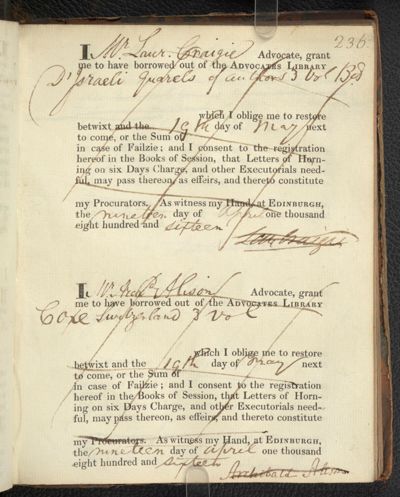 236
I, Mr. Laur. Craigie Advocate, grant
me to have borrowed out of the ADVOCATES LIBRARY
D'Israeli quarels of authors 3 vol Bds
which I oblige me to restore
betwixt and the 19th day of May next
to come, or the Sum of
in case of Failzie; and I consent to the registration
hereof in the Books of Session, that Letters of Horn-
ing on six Days Charge, and other Executorials need-
ful, may pass thereon, as effeirs, and thereto constitute
my Procurators. As witness my Hand, at EDINBURGH,
the nineteen day of april one thousand
eight hundred and sixteen
Laur Craigie
I, Mr. Archd. Alison Advocate, grant
me to have borrowed out of the ADVOCATES LIBRARY
Coxe Switzerland 3 vol
which I oblige me to restore
betwixt and the 19th day of May next
to come, or the Sum of
in case of Failzie; and I consent to the registration
hereof in the Books of Session, that Letters of Horn-
ing on six Days Charge, and other Executorials need-
ful, may pass thereon, as effeirs, and thereto constitute
my Procurators. As witness my Hand, at EDINBURGH,
the nineteen day of april one thousand
eight hundred and sixteen
Archibald Alison